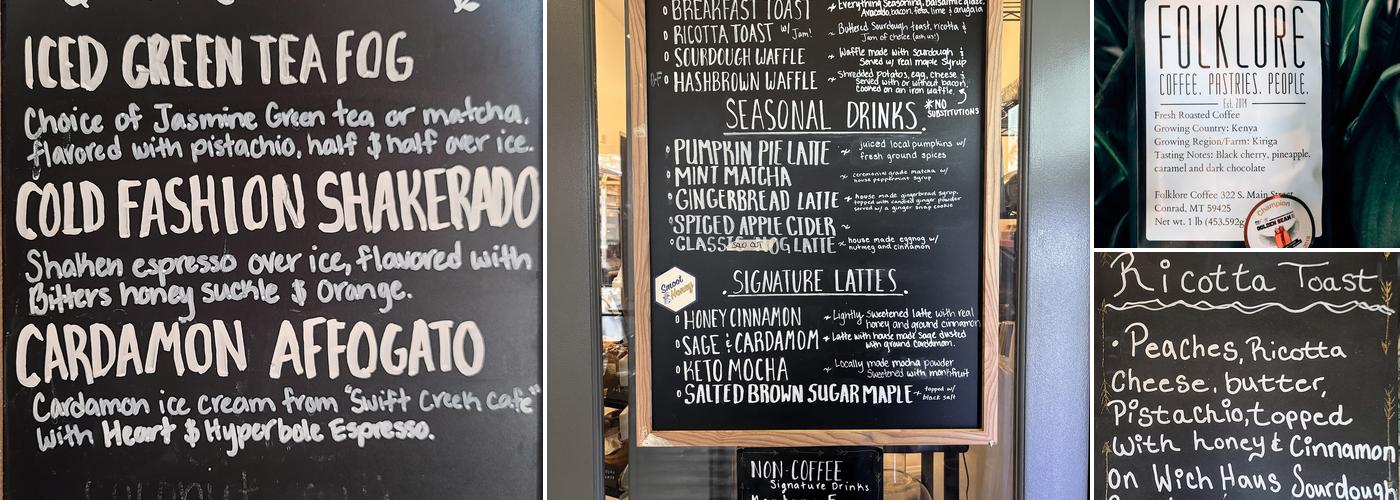 ICED GREEN TEA FOG
Choice of Jasmine Green tea or matcha.
flavored with pistachio, half $ half over ice.
COLD FASHION SHAKERADO
Shaken espresso over ice, flavored with
Bitters honey suckle $ Orange.
CARDAMON AFFOGATO
Cardamon ice cream from "Swift Creek cafe"
with Heart $ Hyperbole Espresso.
BREAKFAST TOAST ~ Everything Seasoning, balsamic glaze,
Avocado, bacon, feta, lime & arugula
RICOTTA TOAST w/ Jam! ~ Buttered Sourdough toast, ricotta &
Jam of choice (ask us!)
SOURDOUGH WAFFLE ~ Waffle made with sourdough &
Served w/ real maple syrup
HASHBROWN WAFFLE ~ Shredded potatos, egg, cheese &
Served with or without bacon.
Cooked on an iron waffle.
SEASONAL DRINKS. *NO
SUBSTITUTIONS
PUMPKIN PIE LATTE ~ juiced local pumpkins w/
fresh ground spices
MINT MATCHA ~ ceremonial grade matcha w/
house peppermint syrup
GINGERBREAD LATTE ~ house made gingerbread syrup,
topped with candied ginger powder
served w/ a ginger snap cookie
SPICED APPLE CIDER ~
CLASSIC OG LATTE ~ house made eggnog w/
nutmeg and cinnamon
Smoot
Honey
SIGNATURE LATTES.
HONEY CINNAMON ~ Lightly sweetened latte with real
honey and ground cinnamon
SAGE & CARDAMOM ~ Latte with house made sage dusted
with ground carddamom.
KETO MOCHA ~ Locally made mocha powder
Sweetened with monkfruit
SALTED BROWN SUGAR MAPLE ~ topped w/
black salt
NON-COFFEE
Signature Drinks
FOLKLORE
COFFEE. PASTRIES. PEOPLE.
Est. 2014
Fresh Roasted Coffee
Growing Country: Kenya
Growing Region/Farm: Kiriga
Tasting Notes: Black cherry, pineapple,
caramel and dark chocolate
Folklore Coffee 322 S. Main Street
Conrad, MT 59425
Net wt. 1 lb (453.592g
Champion
GOLDEN BEAN
Ricotta Toast
• Peaches, Ricotta
Cheese, butter,
Pistachio, topped
with honey & Cinnamon
on Wich Haus Sourdough